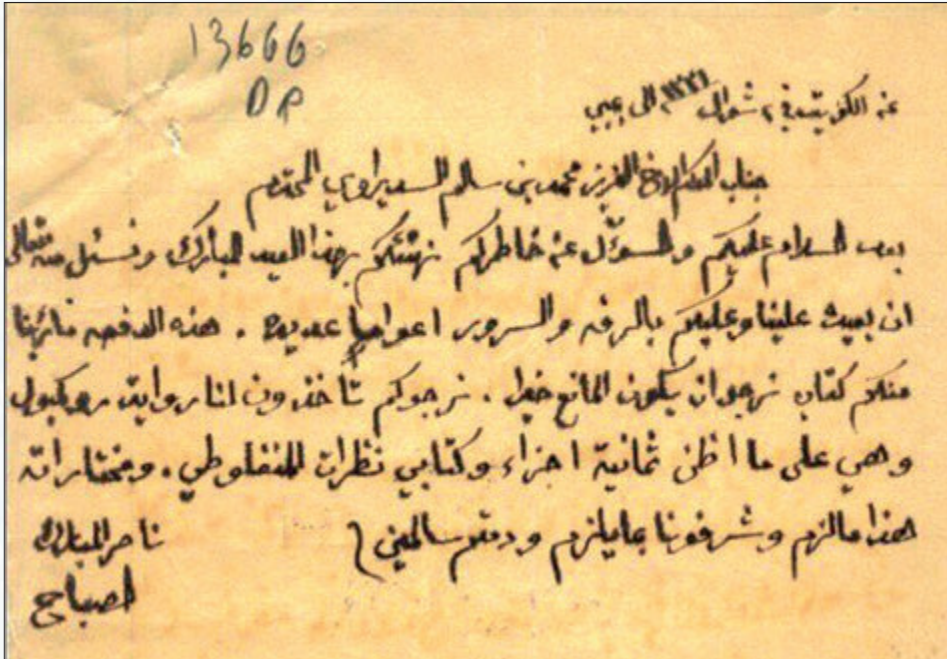 13666
DR
عن الكويت في ٢ شوال الى بمبي
جناب المكرم الاخ العزيز محمد بن سالم السديراوي المحترم
بعد السلام عليكم والسؤال عن خاطركم نهنئكم بهذا العيد المبارك ونسئل منه تعالى
ان يعيده علينا وعليكم بالرفه والسرور اعواماً عديدة . هذه الدفعه ما رأينا
منكم كتاب نرجو ان يكون المانع خيرا . نرجوكم تأخذون لنا رواية روكمبول
وهي على ما اظن ثمانية اجزاء وكتابي نظرات المنفلوطي . ومختاراته
هذا مالزم وشرفونا بمايلزم ودمتم سالمين
ناصر المبارك
الصباح